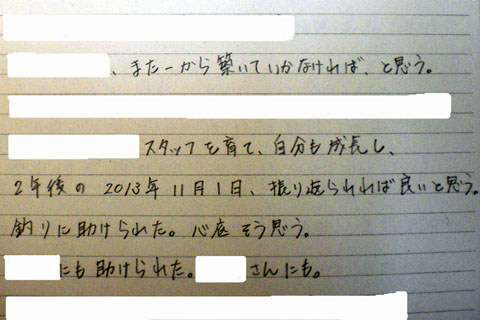 、また一から築いていかなければ、と思う。
スタッフを育て、自分も成長し、
2年後の 2013年 11月1日、振り返られれば良いと思う。
釣りに助けられた。心底そう思う。
にも助けられた。 さんにも。